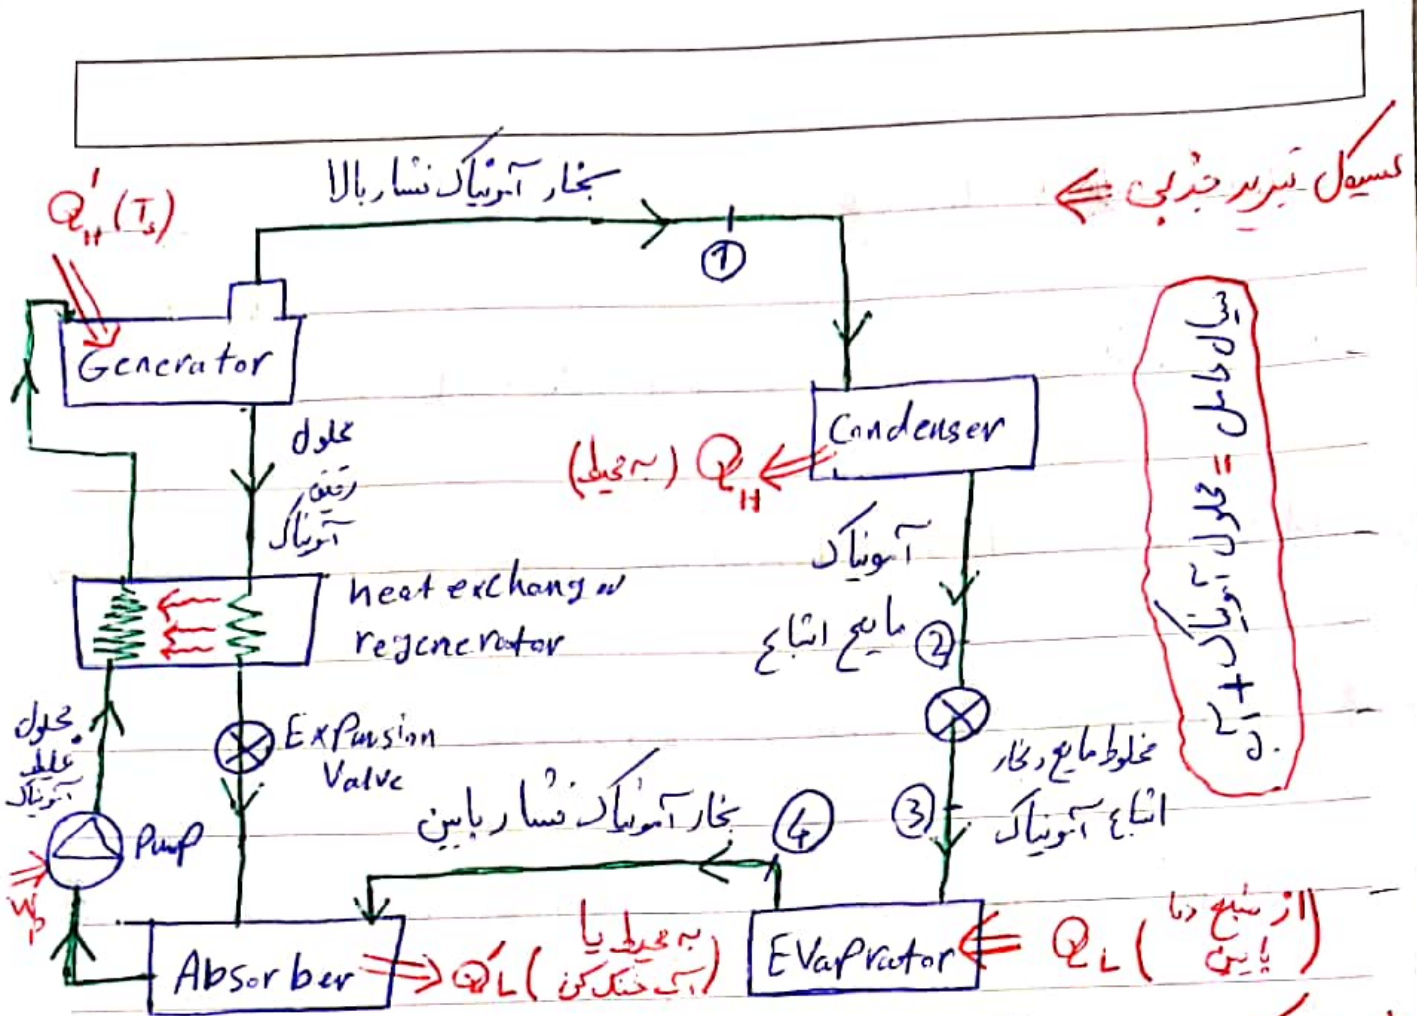 سیکل تبرید جذبی ⇐
بخار آمونیاک فشار بالا
Q'H (Ts)
1
Generator
Condenser
QH (به محیط)
محلول
رقیق
آمونیاک
سیال عامل = محلول آمونیاک + آب
آمونیاک
مایع اشباع
2
heat exchanger
regenerator
محلول
غلیظ
آمونیاک
Expansion
Valve
مخلوط مایع و بخار
اشباع آمونیاک
3
بخار آمونیاک فشار پایین
4
Pump
Wp
Absorber
Q'L (به محیط یا
آب خنک کن)
EVaprator
QL (از منبع دما
پایین)